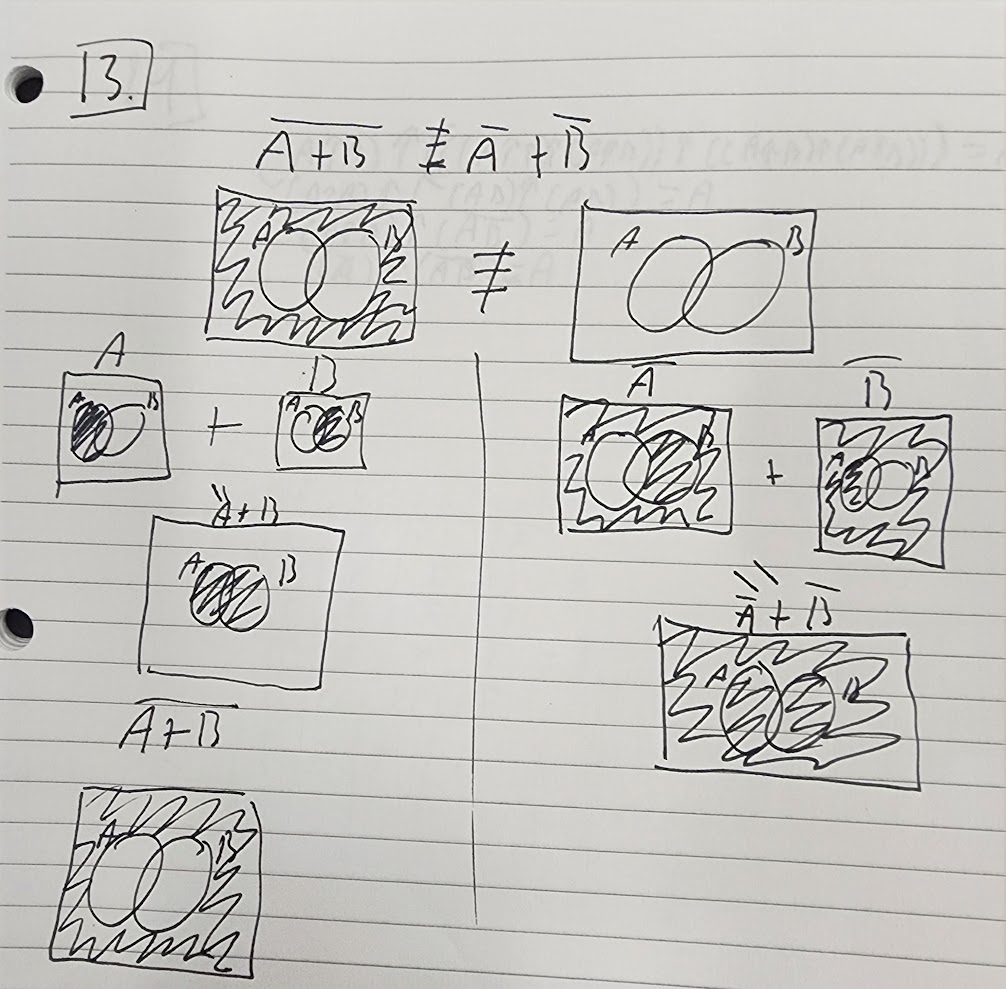 13.
A̅+̅B̅ ≢ A̅ + B̅
A B ≢ A B
A B A̅ B̅
A B + A B A B + A B
A + B
A B
A̅ + B̅
A B
A̅+̅B̅
A B